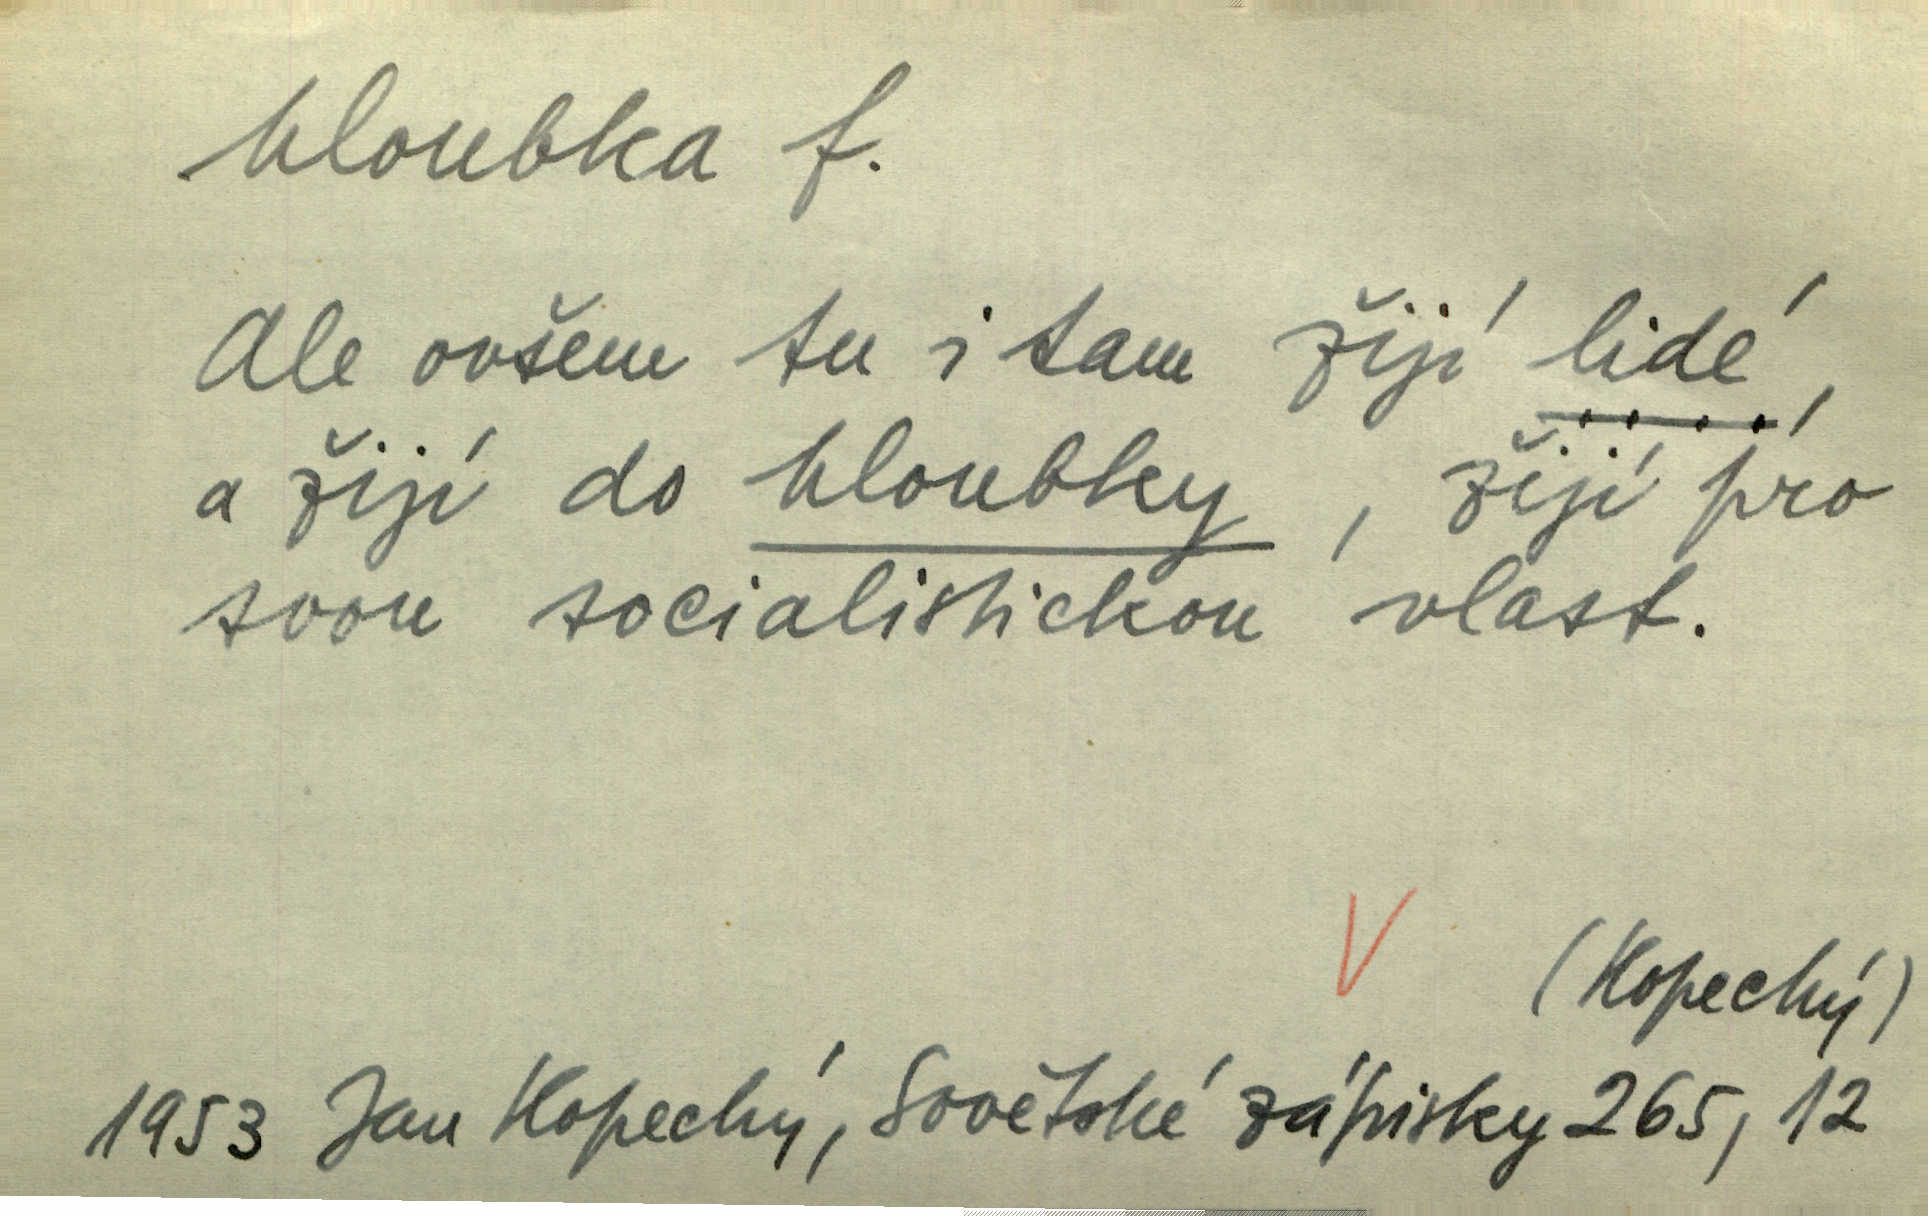 hloubka f.
Ale ovšem tu i tam žijí lidé,
a žijí do hloubky, žijí pro
svou socialistickou vlast.
V
(Kopecký)
1953 Jan Kopecký, Sovětské zápisky 265, 12